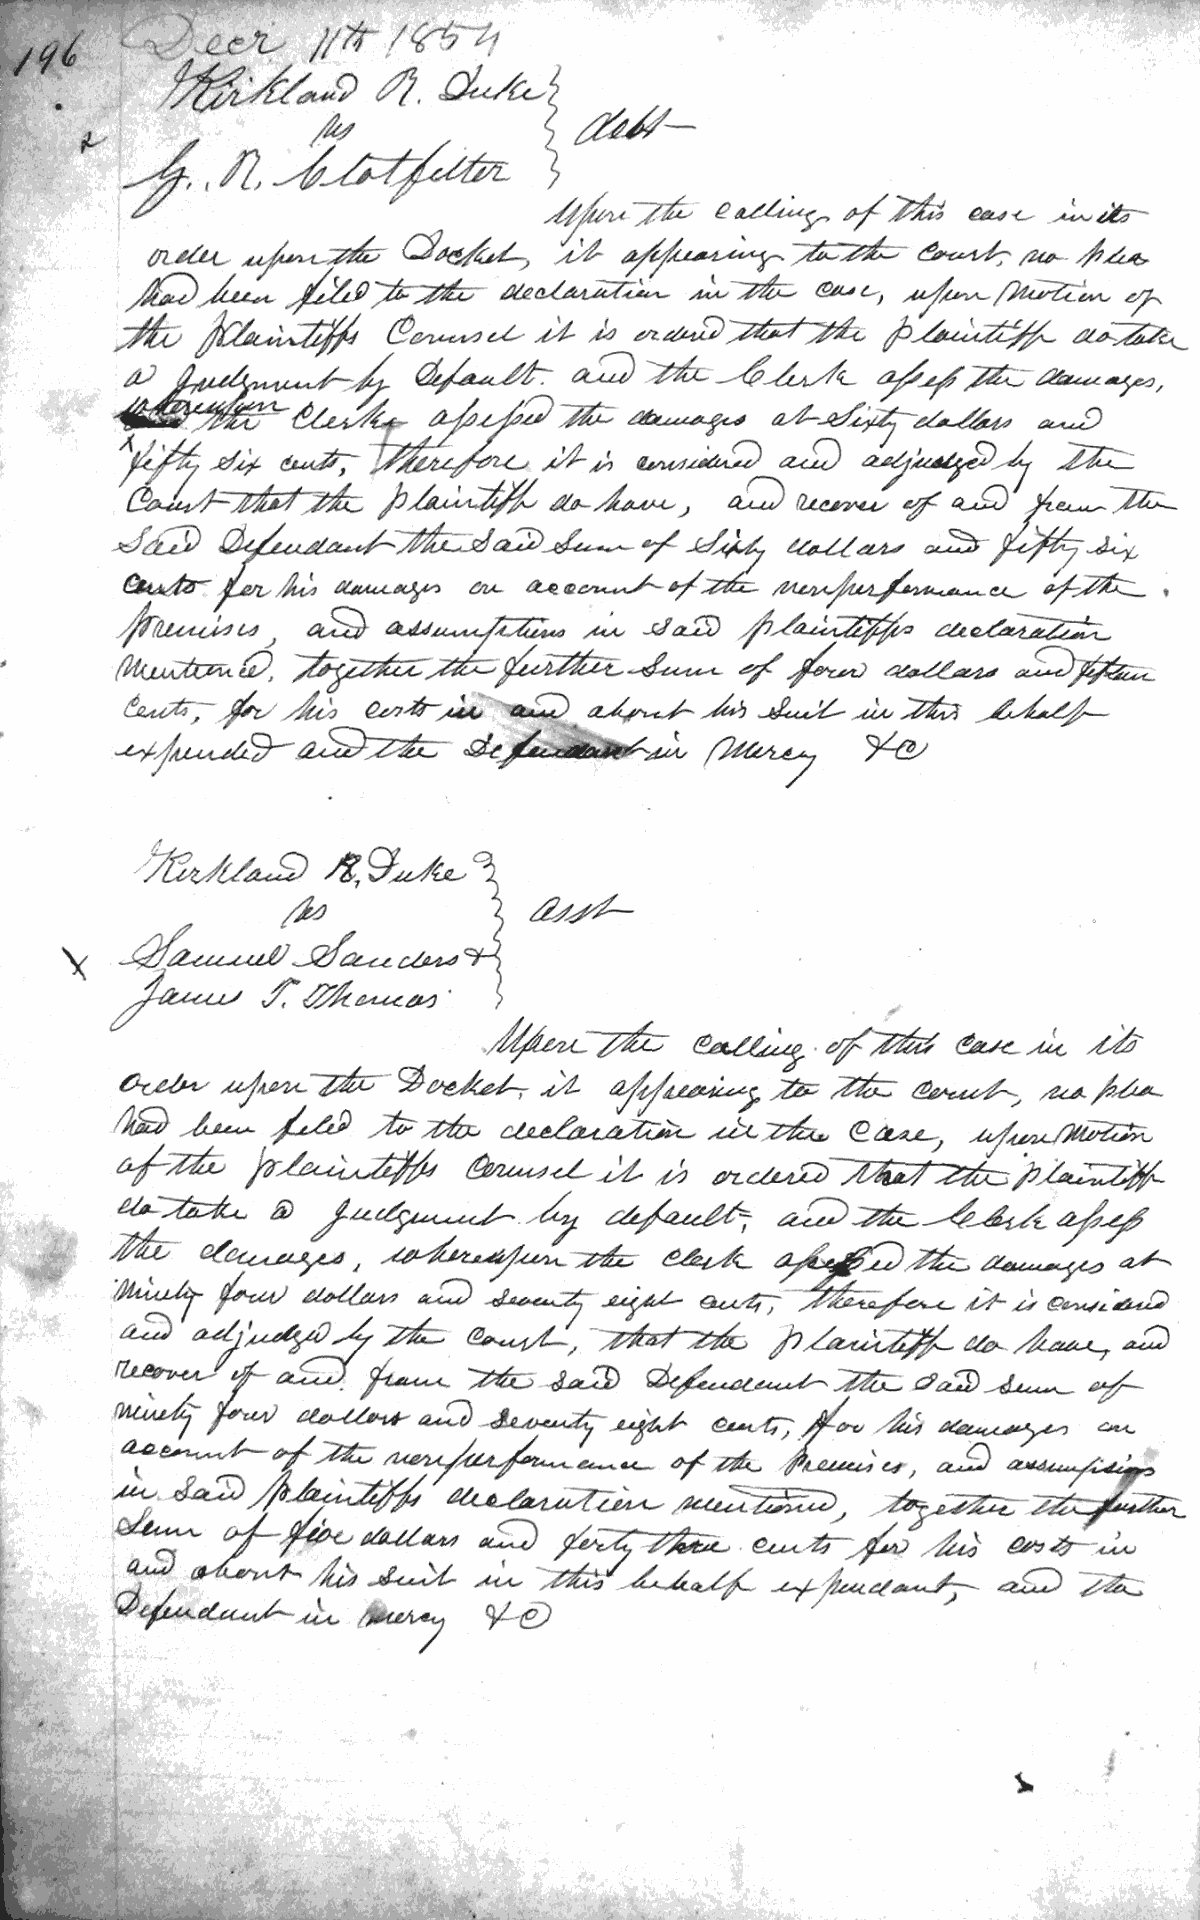 196
Decr 11th 1854
Kirkland R. Duke
vs
debt
G. R. Clotfelter
Upon the calling of this case in its
order upon the Docket, it appearing to the court, no plea
had been filed to the declaration in the case, upon Motion of
the Plaintiffs Counsel it is ordered that the Plaintiff do take
a Judgment by Default. and the Clerk assess the damages,
whereupon
the Clerk assessed the damages at Sixty dollars and
fifty six cents, therefore it is considered and adjudged by the
Court that the plaintiff do have, and recover of and from the
Said Defendant the Said Sum of Sixty dollars and fifty six
cents for his damages on account of the nonperformance of the
premises, and assumptions in said plaintiffs declaration
mentioned, together the further Sum of four dollars and fifteen
Cents, for his costs in and about his Suit in this behalf
expended and the Defendant in Mercy &C
Kirkland R. Duke
vs
asst
x
Samuel Sanders &
James T. Thomas
Upon the calling of this case in its
order upon the Docket, it appearing to the court, no plea
had been filed to the declaration in the Case, upon Motion
of the plaintiffs Counsel it is ordered that the Plaintiff
do take a Judgment by default, and the Clerk assess
the damages, whereupon the Clerk assessed the damages at
ninety four dollars and seventy eight cents, therefore it is considered
and adjudged by the Court, that the Plaintiff do have, and
recover of and from the said Defendant the said sum of
ninety four dollars and seventy eight cents, for his damages on
account of the nonperformance of the Premises, and assumptions
in said Plaintiffs declaration mentioned, together the further
Sum of five dollars and forty three cents for his costs in
and about his suit in this behalf expendant, and the
Defendant in mercy &C